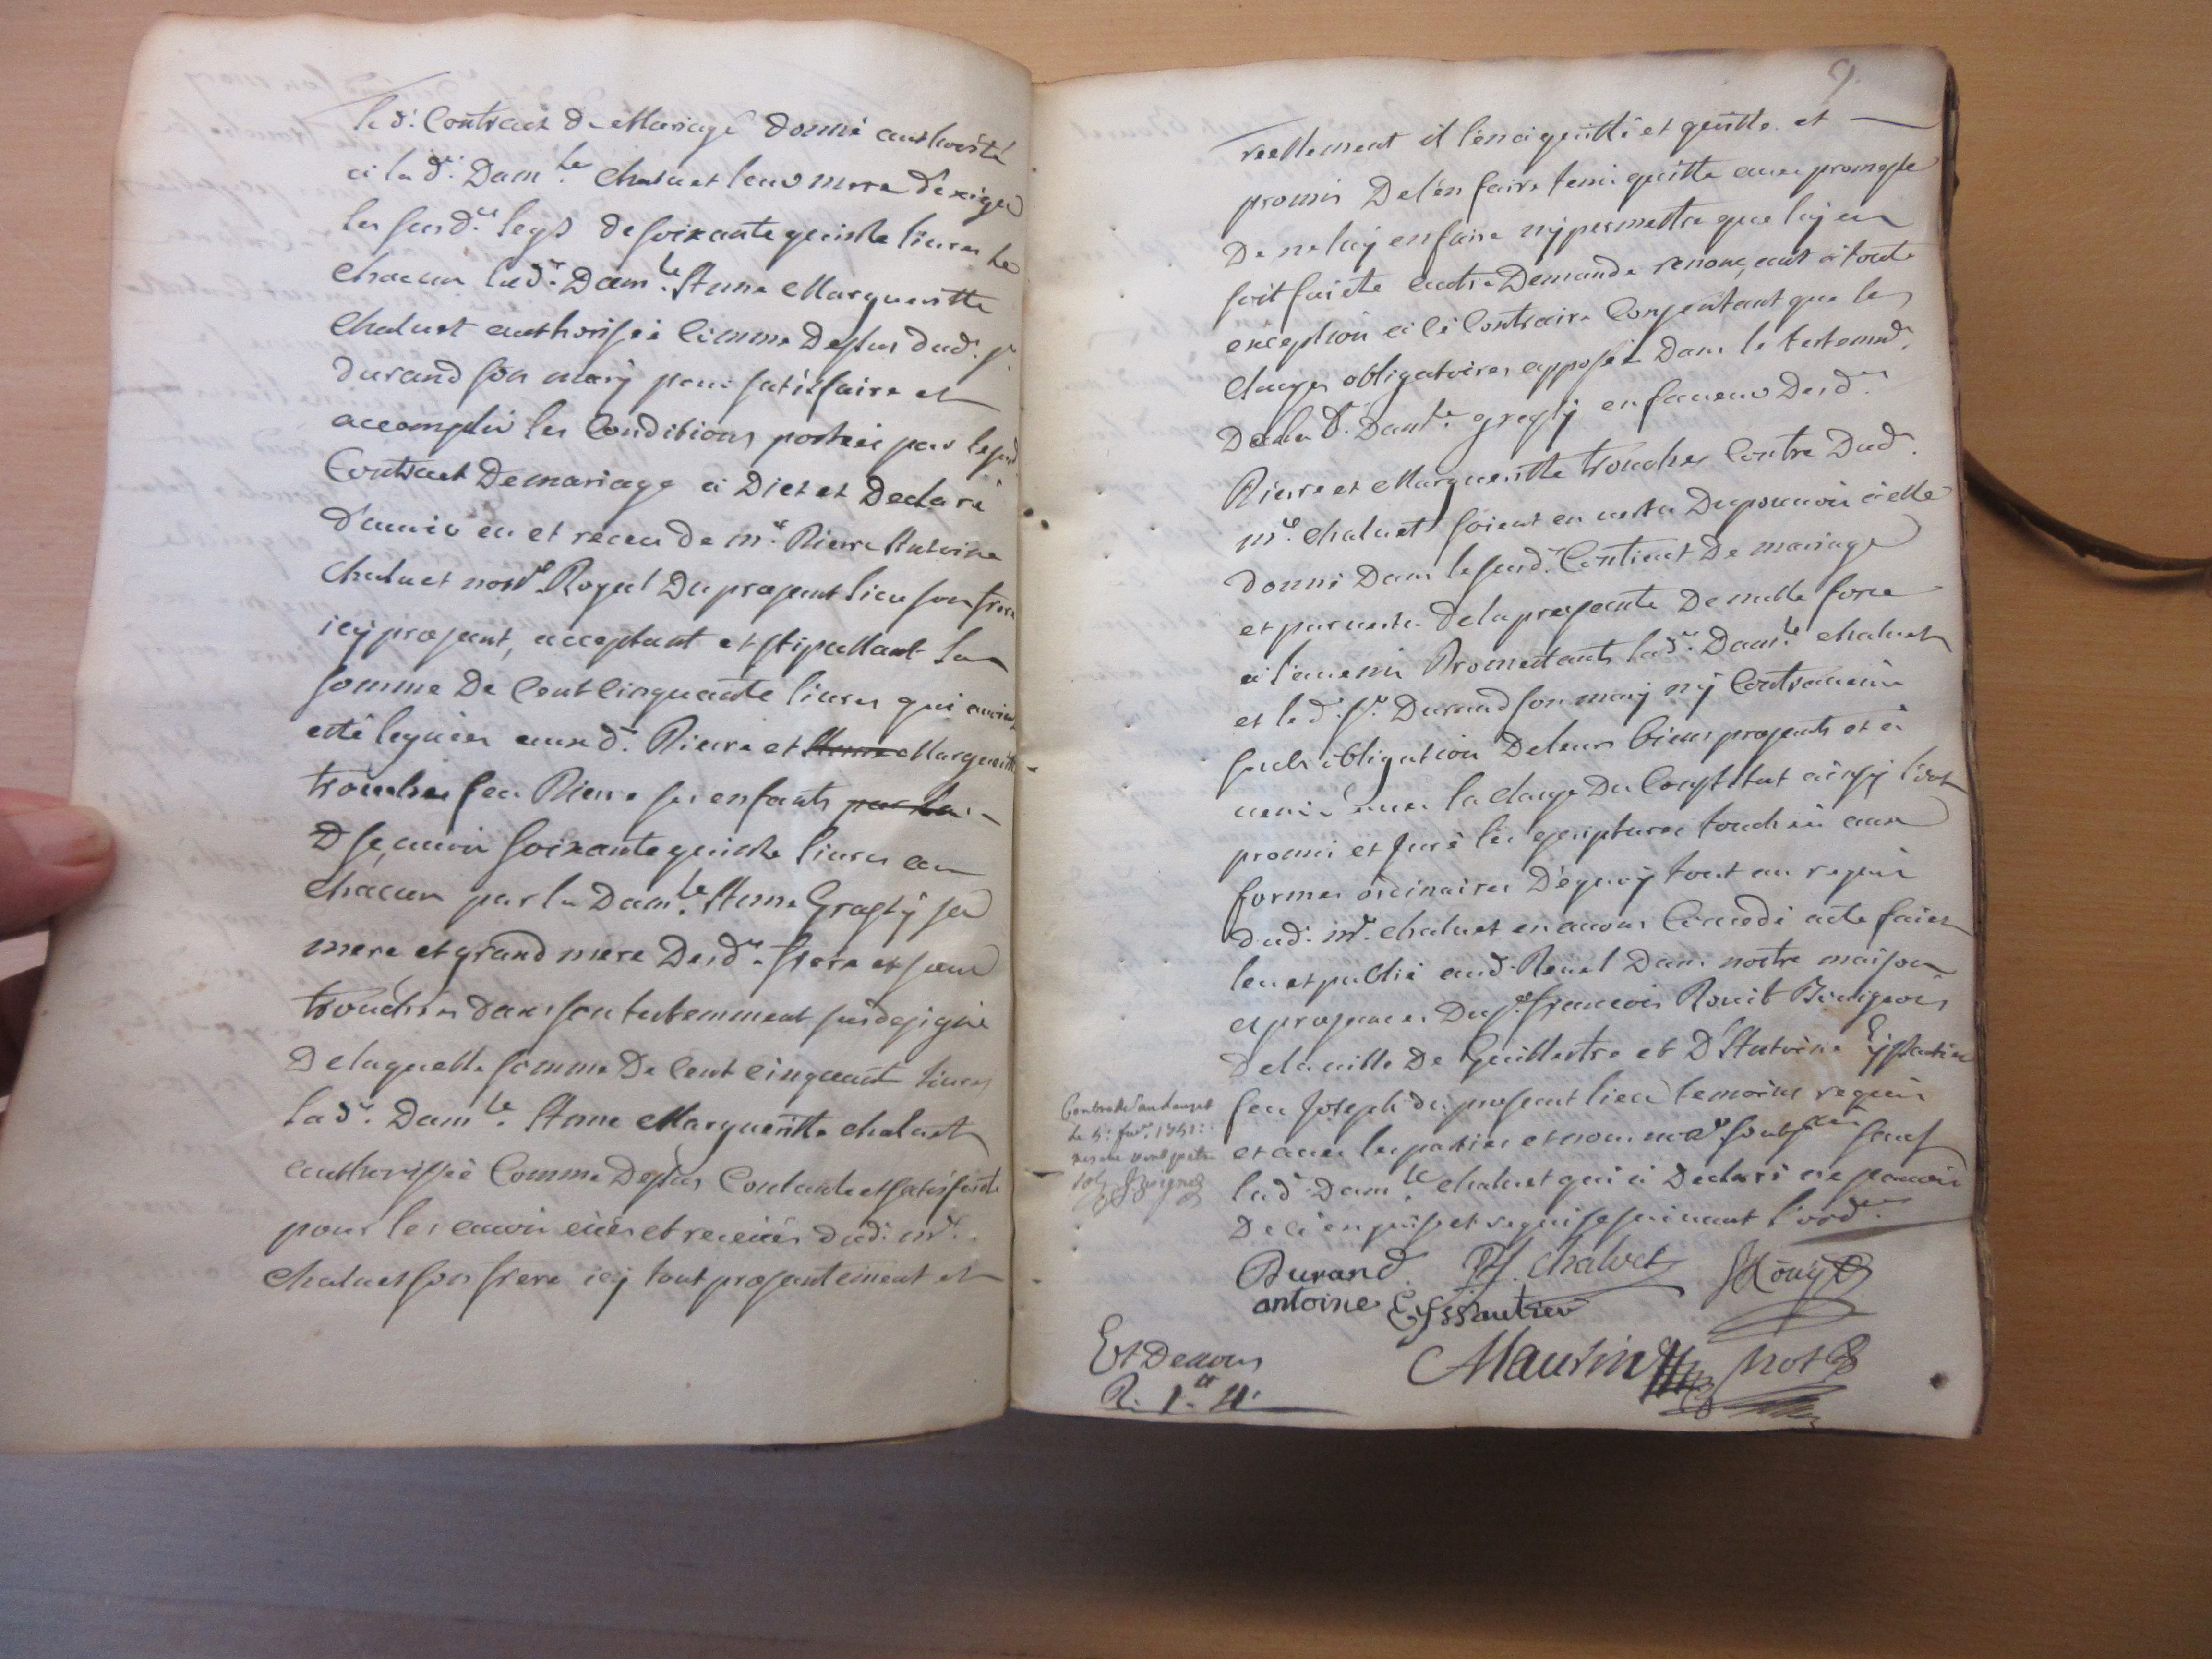 led. Contract de Mariage donné authorité
a lad. Dam.lle Chaluet leur mere d'exiger
les susd.ts legs de soixante quinze livres de
chacun lad.e Dam.lle Anne Margueritte
Chaluet authorisée comme dessus dud. Sr.
durand son mary pour satisfaire et
accomplir les Conditions portées par lesusd.
Contract de mariage a dict et declaré
d'avoir eu et receu de m.e Pierre Antoine
Chaluet not.re Royal du present lieu son frere
icy present, acceptant et stipullant la
somme de Cent Cinquante livres qui avoient
esté leguées auxd. Pierre et Anne Margueritte
trouches feu Pierre ses enfants par la
D sçauoir soixante quinze livres au
chacun par la Dam.lle Anne Grassy sa
mere et grand mere desd.ts frere et sœur
trouches dans son testemment susdesigné
de laquelle somme de Cent cinquante livres
lad.e Dam.lle Anne Margueritte chaluet
authorisée Comme dessus Contante et satisfaicte
pour les avoir eües et receües dud. m.e
chaluet son frere icy tout presentement et
9.
reellement il l'en a quitté et quitte et
promis de l'en faire tenir quitte avec promesse
de ne luy en faire ny permettre que luy en
soit faicte autre demande renonçant a toute
exception a ce Contraire Consentant que les
clauses obligatoires apposées dans le testemnt.
de la d. Dam.lle grassy en faveur desd.ts
Pierre et Margueritte trouches Contre dud.
m.e chaluet soient en vertu du pouvoir a elle
donné dans le susd. Contract de mariage
et par vertu de la presente de nulle force
a l'avenir Promettants lad.e Dam.lle chaluet
et led. Sr. Durand son mary n'y Contrevenir
sub obligation de leurs biens presents et a
venir avec la clause du Constitut ainsy l'ont
promis et juré les escriptures touchées aux
formes ordinaires de quoy tout au requis
dud. m.e chaluet en avons Concedé acte faict
leu et publié aud. Revel dans nostre maison
es presences du Sr. françois Rouit Bourgeois
de la ville de Guillestre et d'Antoine Eyssautier
feu Joseph du present lieu temoins requis
et avec les parties et nous no.re soubsnés sauf
lad. Dam.lle chaluet qui a declaré ne pouvoir
de ce enquise et requise suivant l'ord.ce
le 5.e fev. 1751:
Durand P A. chalvet Rouy
antoine Eyssautier
Et De nous
Maurin not
R. 1.tt 4s